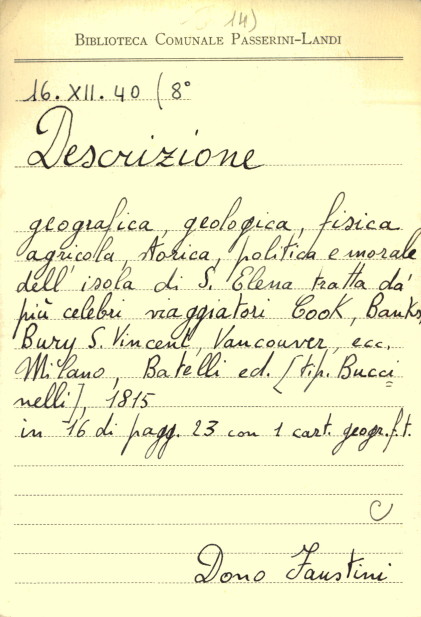 14)
BIBLIOTECA COMUNALE PASSERINI-LANDI
16. XII. 40 (8°
Descrizione
geografica, geologica, fisica
agricola, storica, politica e morale
dell'isola di S. Elena tratta da'
più celebri viaggiatori Cook, Banks,
Bury S. Vincent, Vancouver, ecc.
Milano, Batelli ed. [tip. Bucci=
nelli], 1815
in 16 di pagg. 23 con 1 cart. geogr. f. t.
C
Dono Faustini